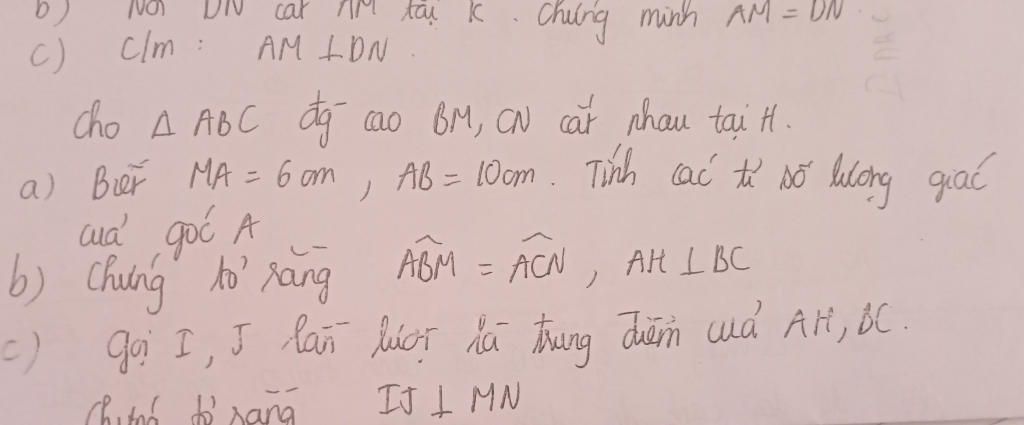 b) Nối DN cắt AM tại K. Chứng minh AM = DN
c) C/m : AM ⊥ DN.
Cho Δ ABC đg cao BM, CN cắt nhau tại H.
a) Biết MA = 6 cm, AB = 10cm. Tính các tỉ số lượng giác
của góc A
b) Chứng tỏ rằng \widehat{ABM} = \widehat{ACN}, AH ⊥ BC
c) Gọi I, J lần lượt là trung điểm của AH, BC.
Chứng tỏ rằng IJ ⊥ MN